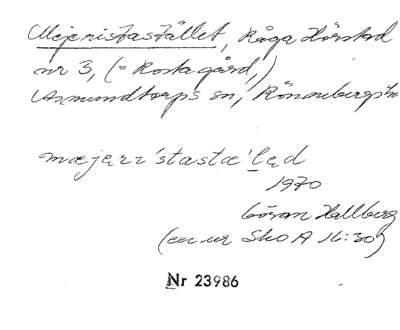 Mejeristastället, Råga Hörstad
nr 3, (= Rosta gård,)
Asmundtorps sn, Rönnebergs hd
mæjærɪ'stastæ'ləd
1970
Göran Hallberg
(exc ur Sko A 16:30)
Nr 23986